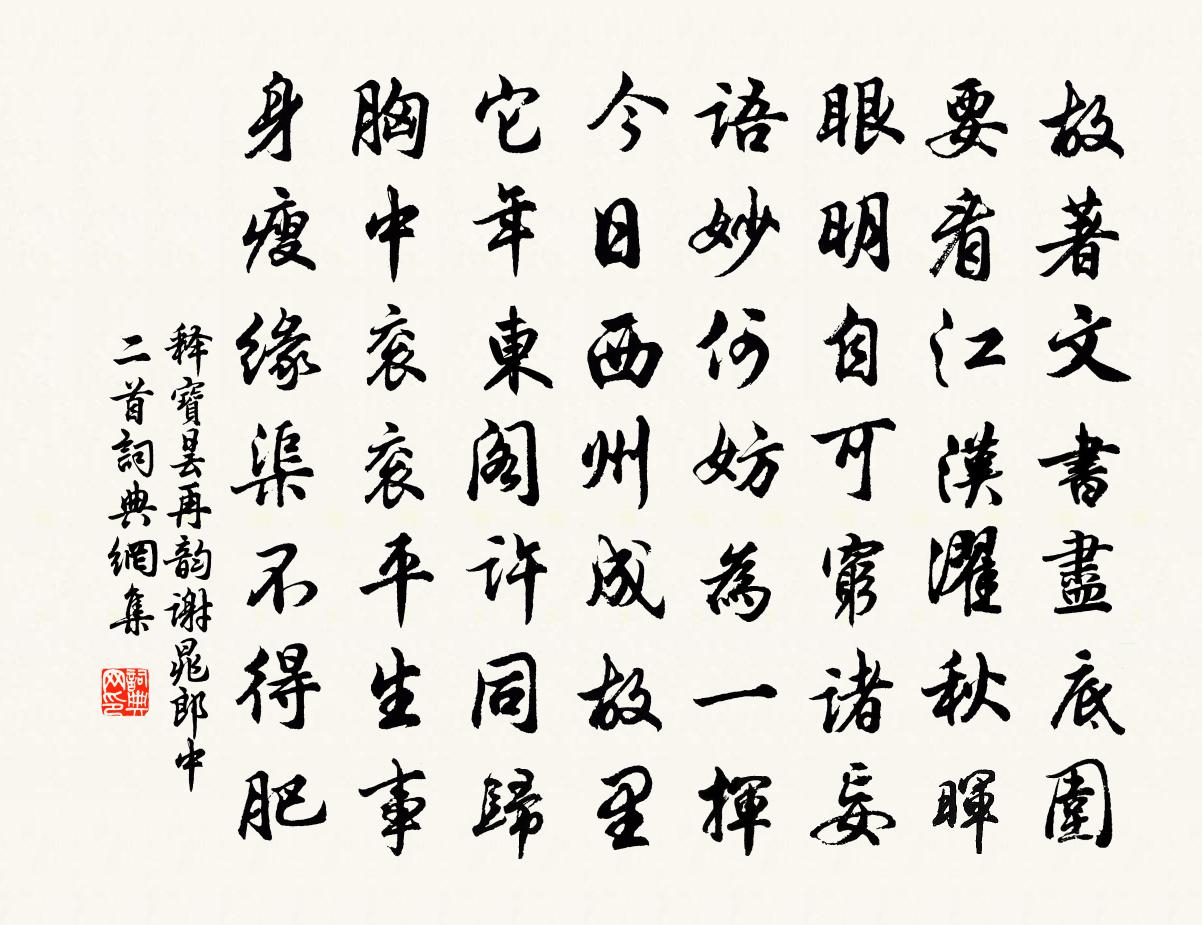 故著文書盡底圍
要看江漢濯秋暉
眼明自可窮諸妄
語妙何妨為一揮
今日西州成故里
它年東閣許同歸
胸中衮衮平生事
身瘦緣渠不得肥
释寶曇再韵谢晁郎中
二首詞典網集
詞典网印